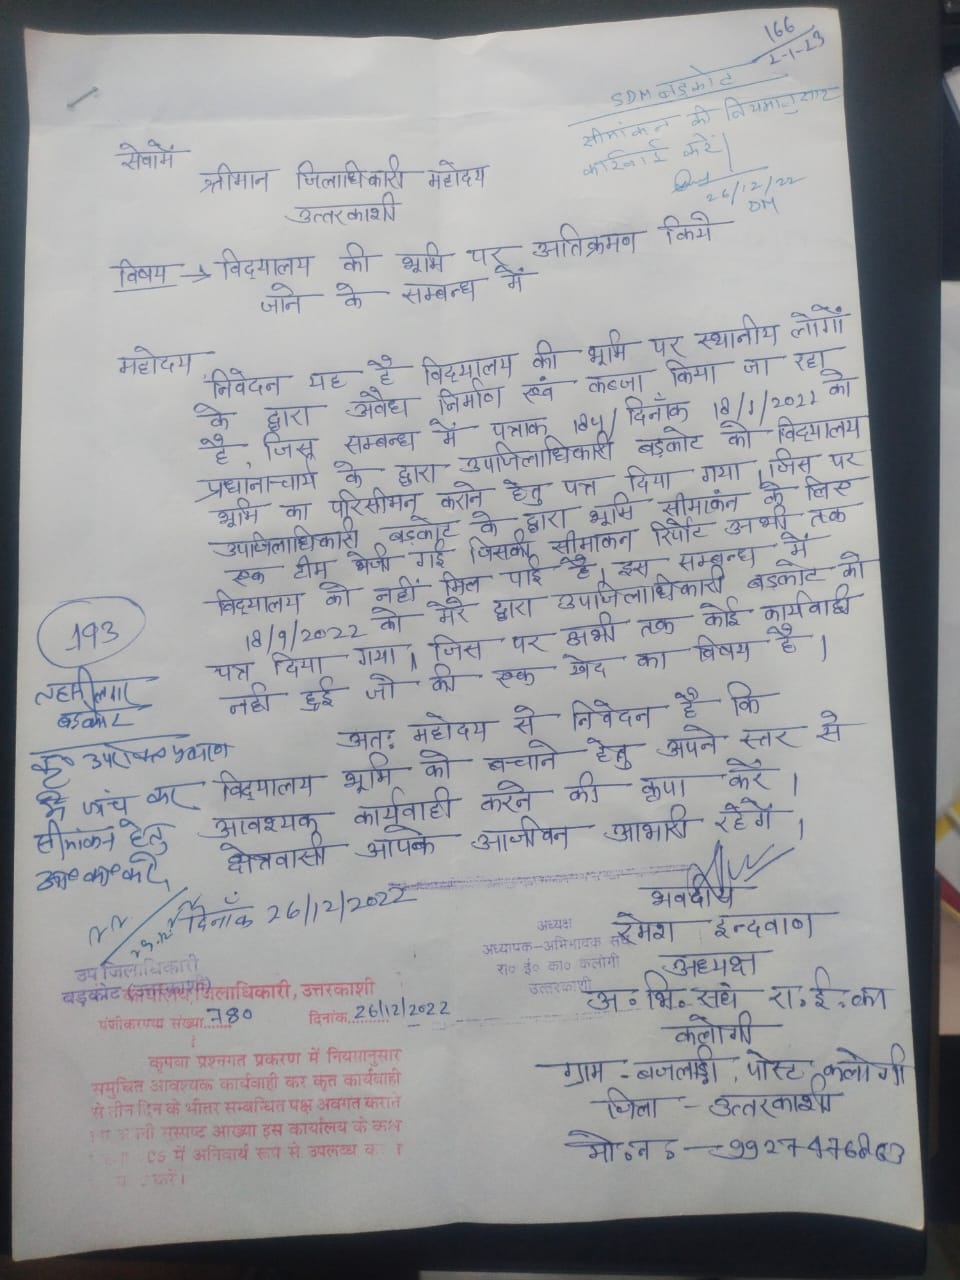 166
2-1-23
SDM बड़कोट
सीमांकन की नियमानुसार
कार्रवाई करें।
26/12/22
DM
सेवामें
श्रीमान जिलाधिकारी महोदय
उत्तरकाशी
विषय → विद्यालय की भूमि पर अतिक्रमण किये
जाने के सम्बन्ध में
महोदय,
निवेदन यह है विद्यालय की भूमि पर स्थानीय लोगों
के द्वारा अवैध निर्माण एवं कब्जा किया जा रहा
है, जिस सम्बन्ध में पत्राक 184/ दिनाँक 18/1/2022 को
प्रधानाचार्य के द्वारा उपजिलाधिकारी बड़कोट को विद्यालय
भूमि का परिसीमन कराने हेतु पत्र दिया गया। जिस पर
उपजिलाधिकारी बड़कोट के द्वारा भूमि सीमाकंन के लिए
एक टीम भेजी गई जिसकी सीमाकन रिर्पोट अभी तक
विद्यालय को नहीं मिल पाई है। इस सम्बन्ध में
18/9/2022 को मेरे द्वारा उपजिलाधिकारी बड़कोट को
पत्र दिया गया। जिस पर अभी तक कोई कार्यवाही
नही हुई जो की एक खेद का बिषय है।
अतः महोदय से निवेदन है कि
विद्यालय भूमि को बचाने हेतु अपने स्तर से
आवश्यक कार्यवाही करने की कृपा करें।
क्षेत्रवासी आपके आजीवन आभारी रहेंगें।
193
तहसीलदार
बड़कोट
कृ० उपरोक्त प्रकरण
में जांच कर
सीमांकन हेतु
आ० का० करें
दिनाँक 26/12/2022
उप जिलाधिकारी
बड़कोट (उत्तरकाशी)
भवदीय
रमेश इन्दवाण
अध्यक्ष
अ. भि. संघ रा. ई. का
कलोगी
ग्राम - बजलाड़ी, पोस्ट - कलोगी
जिला - उत्तरकाशी
मो. न. - 9927476863
अध्यक्ष
अध्यापक-अभिभावक संघ
रा० ई० का० कलोगी
उत्तरकाशी
कार्यालय जिलाधिकारी, उत्तरकाशी
पंजीकरण संख्या 780 दिनांक 26/12/2022
कृपया प्रश्नगत प्रकरण में नियमानुसार
समुचित आवश्यक कार्यवाही कर कृत कार्यवाही
से तीन दिन के भीतर सम्बन्धित पक्ष अवगत कराते
सुस्पष्ट आख्या इस कार्यालय के कक्ष
में अनिवार्य रूप से उपलब्ध